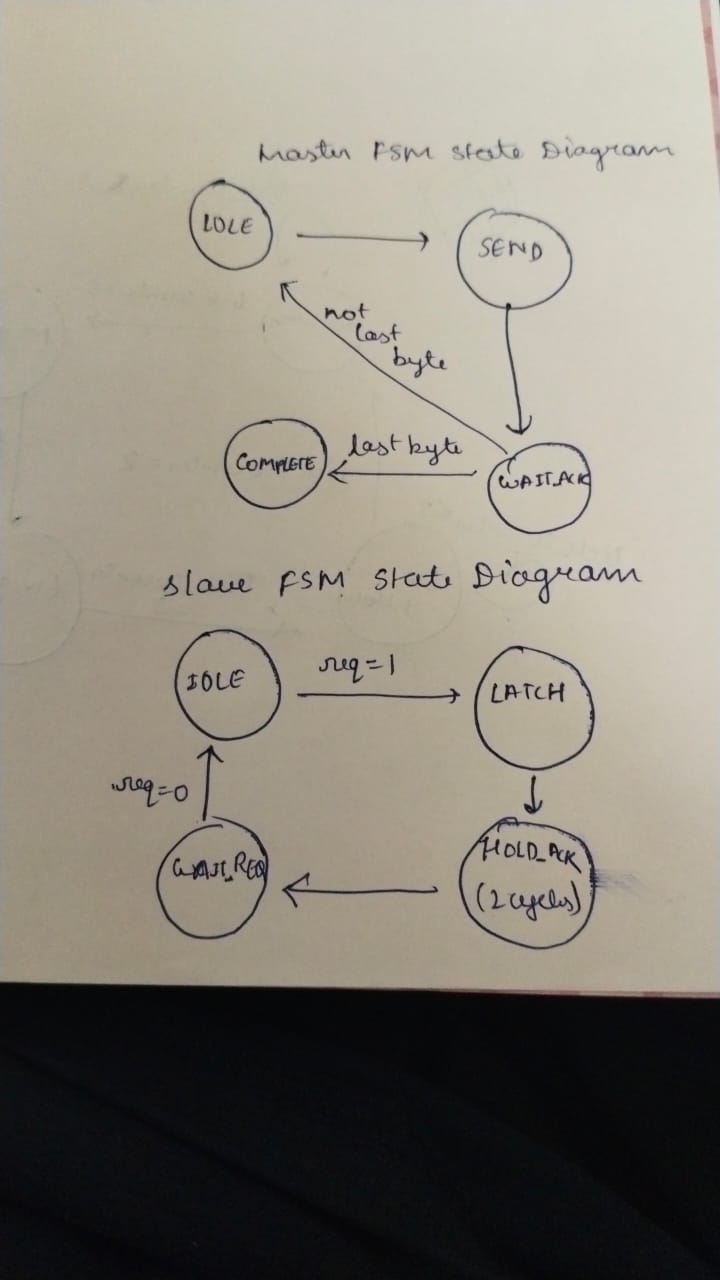 Master FSM State Diagram
IDLE
SEND
not
last
byte
last byte
COMPLETE
WAIT_ACK
Slave FSM State Diagram
IDLE
req=1
LATCH
req=0
WAIT_REQ
HOLD_ACK
(2 cycles)